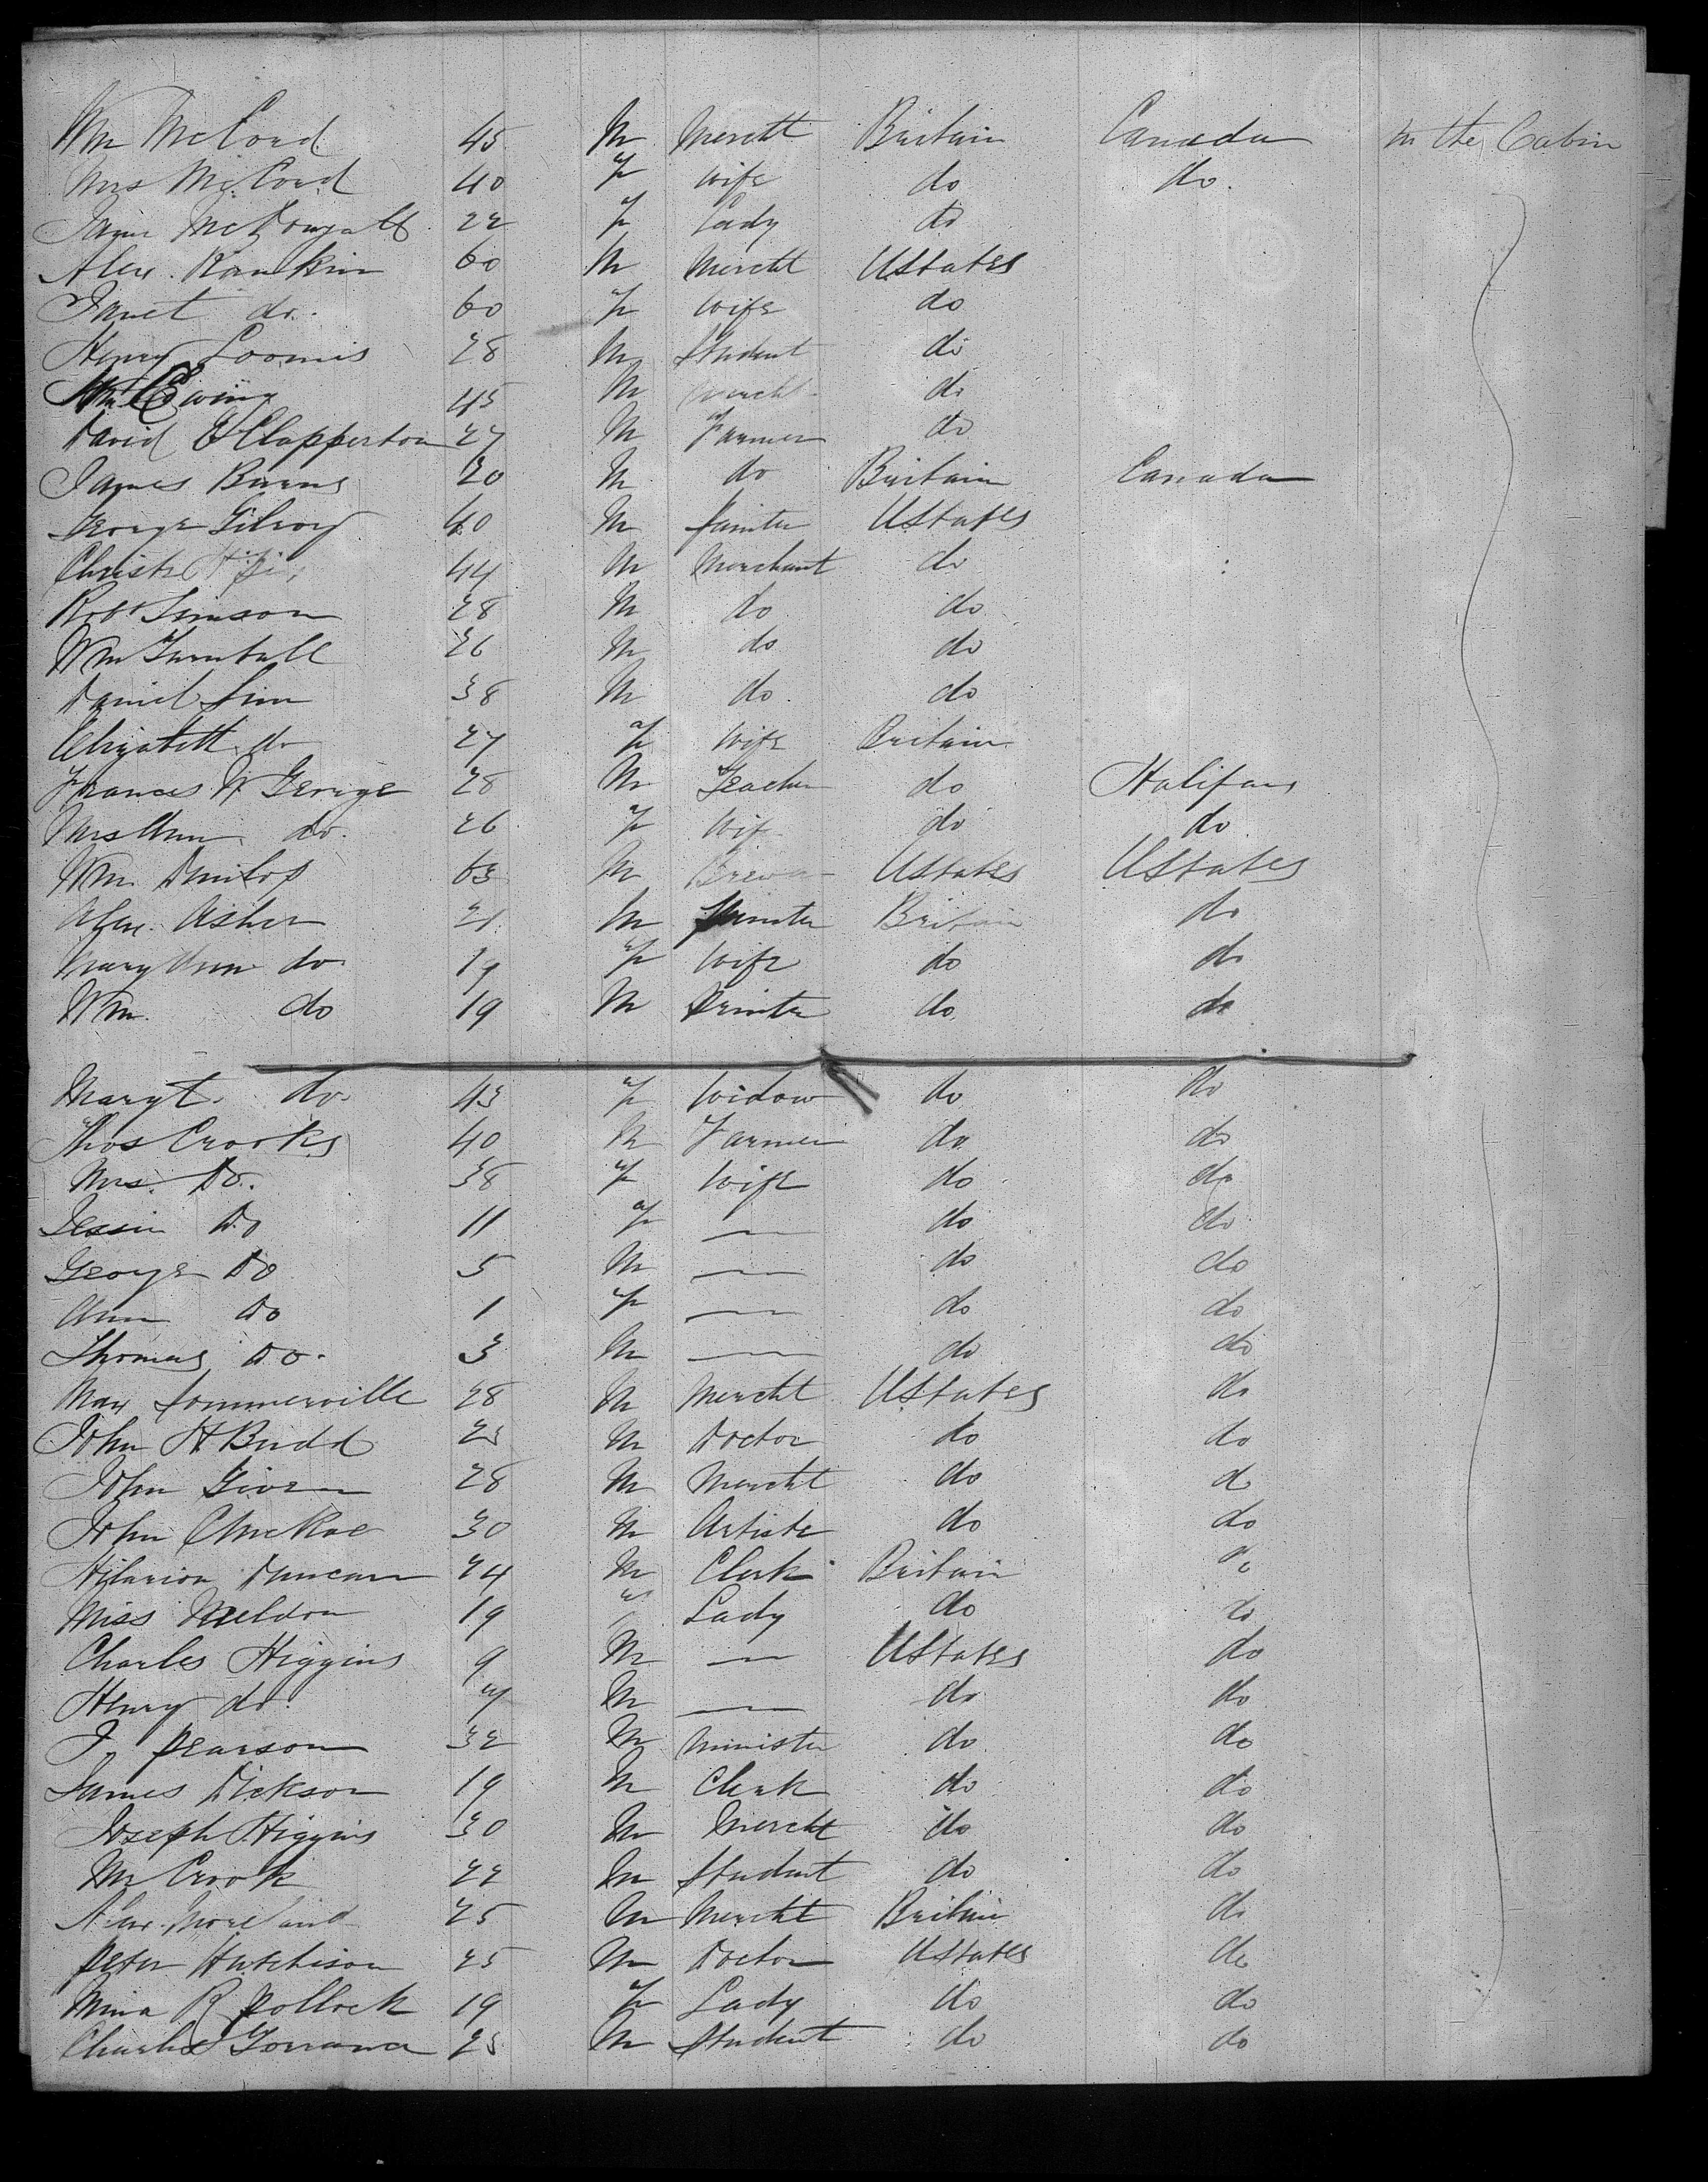 Wm McCord 45 M Mercht Britain Canada In the Cabin
Mrs McCord 40 F Wife do do.
Jane McDougall 22 F Lady do
Alex. Rankin 60 M Mercht UStates
Janet do. 60 F Wife do
Henry Loomis 28 M Student do
Ewing 45 M Mercht do
David Clapperton 27 M Farmer do
James Burns 30 M do Britain Canada
George Gilroy 40 M UStates
44 M Merchant do
Robt Simson 28 M do do
Wm Turnbull 26 M do do
Daniel Sim 38 M do. do
Elizabeth do 27 F Wife Britain
Frances W George 28 M Teacher do Halifax
Mrs Ann do. 26 F Wife do do.
Wm. Dunlop 63 M Brewer UStates UStates
Alex. Asher 21 M Britain do
Mary Ann do. 19 F Wife do do
Wm. do 19 M Printer do. do
Margt. do. 43 F Widow do do
Thos Crooks 40 M Farmer do. do
Mrs. Do. 38 F Wife do do
Jessie Do 11 F — do do
George Do 5 M — do do
Ann Do 1 F — do do
Thomas Do. 3 M — do do
Max Sommerville 28 M Mercht UStates do
John H Budd M Doctor do do
John Given 28 M Mercht do do
John 30 M Artiste do do
Hilarion Duncan 24 M Clerk Britain do
Miss Meldon 19 Lady do do
Charles Higgins 9 M — UStates do
Henry do. 7 M — do do
J. Pearson 32 M Minister do do
James Dickson 19 M Clerk do do
Joseph Higgins 30 M Mercht do do
Mr Crook 22 M Student do do
Alex. Moreland 25 M Mercht Britain do
Peter Hutchison 25 M Doctor UStates do
Mina R Pollock 19 F Lady do do
Charles M Student do do